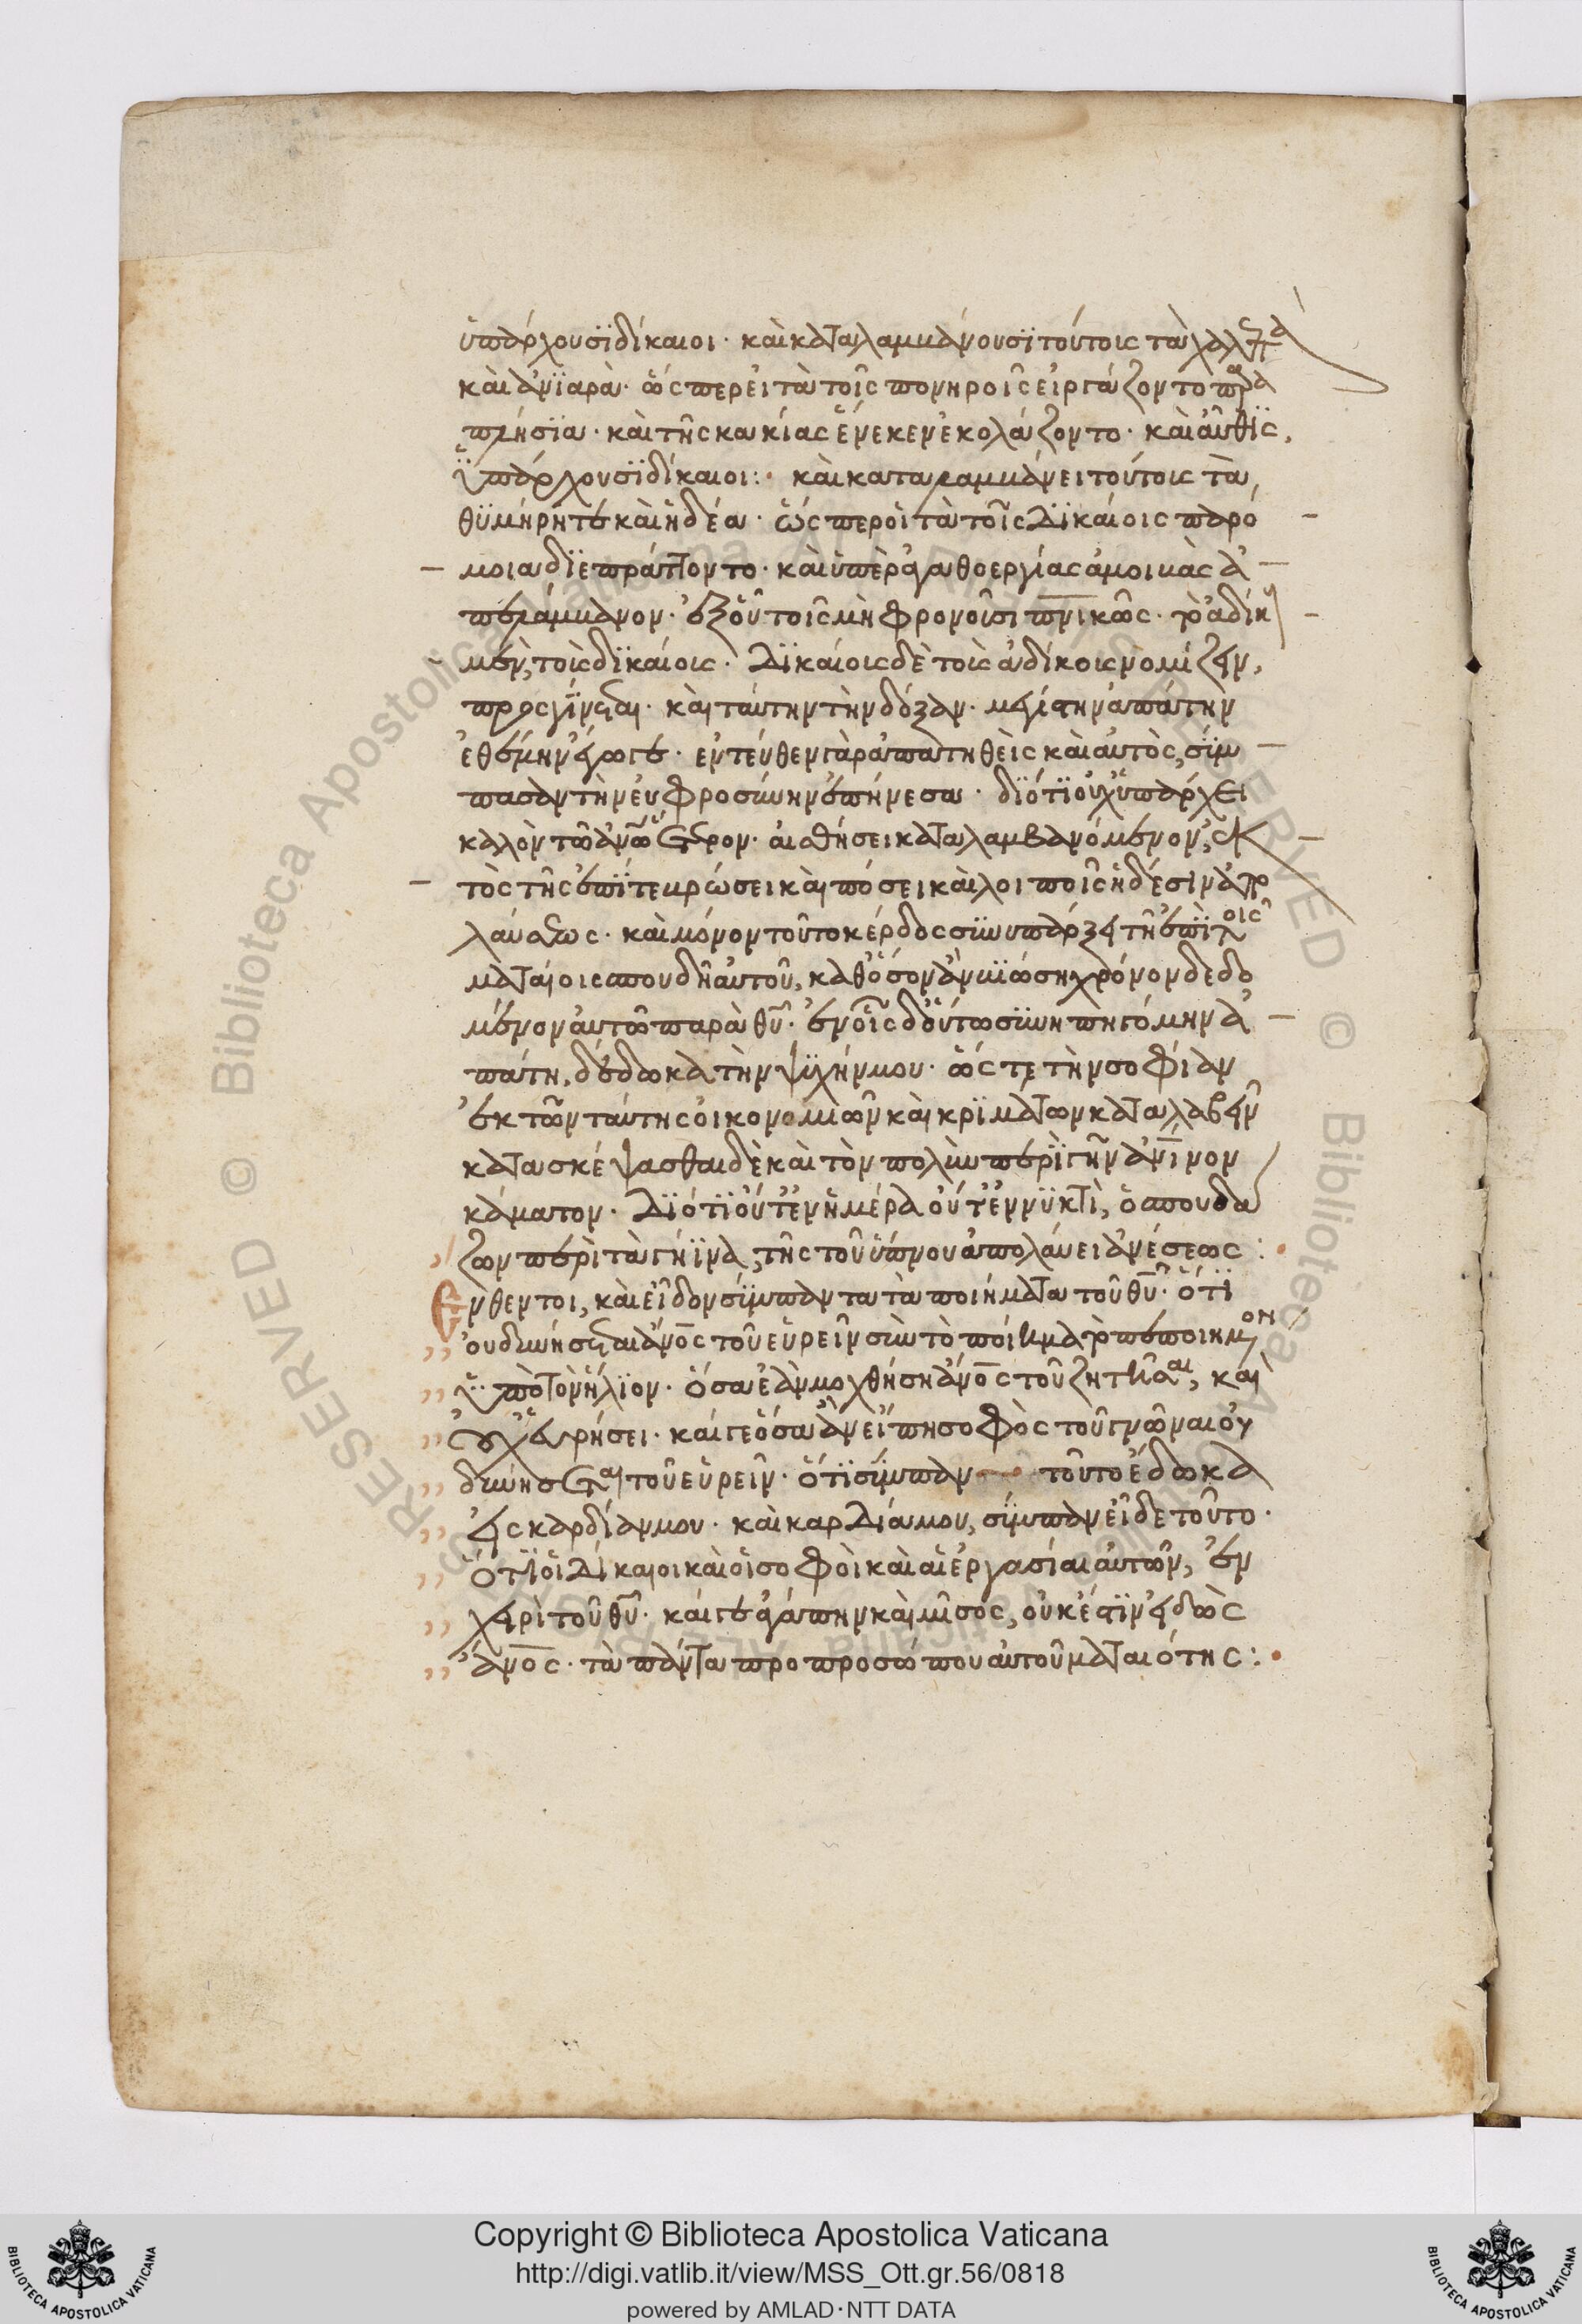 ὑπάρχουσϊ δίκαιοι· καὶ καταλαμβάνουσϊ τούτοις τὰ χαλεπὰ
καὶ ἀνϊαρὰ· ὥς περ εἰ τὰ τοῖς πονηροῖς εἰργάζοντο παρα
πλήσϊα· καὶ τῆς κακίας ἕνεκεν ἐκολάζοντο· καὶ αὖθϊς,
ὑπάρχουσϊ δίκαιοι:· καὶ καταλαμβάνει τούτοις τὰ,
θϋμήρη τε καὶ ἡδέα· ὥς περ οἱ τὰ τοῖς δϊκαίοις παρό
μοια δϊεπράττοντο· καὶ ὑπὲρ ἀγαθοεργίας ἀμοιβὰς ἀ
πελάμβανον· ἐξ οὗ τοῖς μὴ φρονοῦσι πνικῶς· τὸ ἀδίκ
μὲν, τοῖς δϊκαίοις· δϊκαίοις δὲ τοῖς ἀδίκοις νομίζειν,
προςγίνεσθαι· καὶ ταύτην τὴν δόξαν· μεγίστην ἀπάτην
ἐθέμην ἔγωγε· ἐντεύθεν γὰρ ἀπατηθεὶς καὶ αὐτὸς, σύμ
πασαν τὴν εὐφροσύνην ἐπήνεσα· δϊότϊ οὐχ ὑπάρχει
καλὸν τῶ ἀνω ἕτερον· αἰσθήσει καταλαμβανόμενον, ἐκ
τὸς τῆς ἐπϊ τε βρώσει καὶ πόσει καὶ λοιποῖς ἡδέσιν ἀπο
λαύσεως· καὶ μόνον τοῦτο κέρδος συνυπάρξει τῆ ἐπὶ τοῖς
ματαίοις σπουδῆ αὐτοῦ, καθόσον ἀνβϊώση χρόνον δεδο
μένον αὐτῶ παρὰ θυ· ἐν οἷς δ' οὕτω συνηπηγόμην ἀ
πάτη, δέδωκα τὴν ψϋχήν μου· ὥς τε τὴν σοφίαν
ἐκ τῶν ταύτης οἰκονομιῶν καὶ κρϊμάτων καταλαβεῖν
κατασκέψασθαι δὲ καὶ τὸν πολὺν περὶ γῆν ἀνινον
κάματον· δϊότϊ οὔτ' ἐν ἡμέρα οὔτ' ἐν νϋκτὶ, ὁ σπουδά
ζων περὶ τὰ γήϊνα, τῆς τοῦ ὕπνου ἀπολαύει ἀνέσεως:·
Ἐνθεν τοι, καὶ εἶδον σύμπαντα τὰ ποιήματα τοῦ θυ· ὅτϊ
οὐ δυνήσεται ἀνος τοῦ εὑρεῖν σὺν τὸ ποίημα τὸ πεποιημένον
ὑπὸ τὸν ἥλϊον· ὅσα ἐὰν μοχθήση ἀνος τοῦ ζητῆσαι, καὶ
οὐχ εὑρήσει· καί γε ὅσα ἂν εἴπη σοφὸς τοῦ γνῶναι οὐ
δυνήσεται τοῦ εὑρεῖν· ὅτϊ σύμπαν τοῦτο ἔδωκα
εἰς καρδίαν μου· καὶ καρδία μου, σύμπαν εἶδε τοῦτο·
ὅτϊ οἱ δίκαιοι καὶ οἱ σοφοὶ καὶ αἱ ἐργασίαι αὐτῶν, ἐν
χειρὶ τοῦ θυ· καί γε ἀγάπην καὶ μῖσος, οὐκ ἔστϊν εἰδὼς
ὁ ἀνος· τὰ πάντα προ προσώπου αὐτοῦ ματαιότης:·
Copyright © Biblioteca Apostolica Vaticana
http://digi.vatlib.it/view/MSS_Ott.gr.56/0818
powered by AMLAD·NTT DATA
BIBLIOTECA APOSTOLICA VATICANA
BIBLIOTECA APOSTOLICA VATICANA